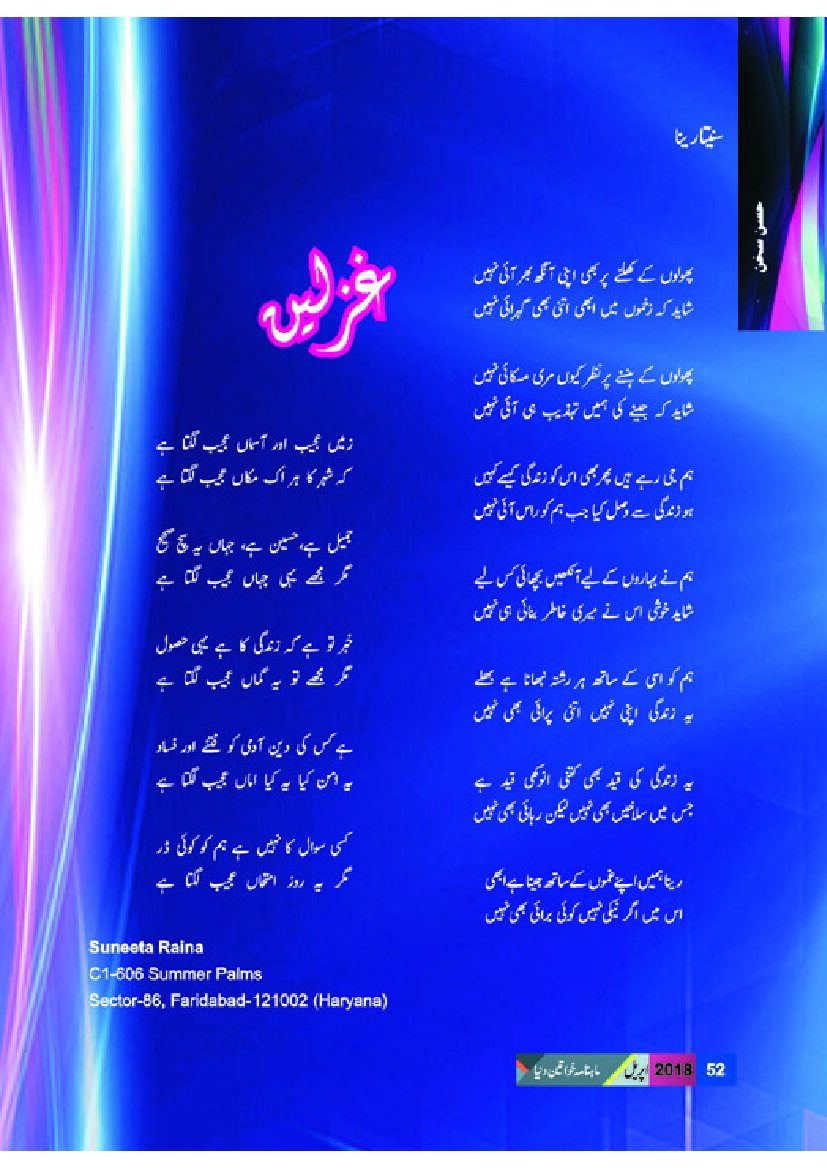 حسن سخن
سنیتا رینا
غزلیں
پھولوں کے کھلنے پر بھی اپنی آنکھ بھر آئی نہیں
شاید کہ زخموں میں ابھی اتنی بھی گہرائی نہیں
پھولوں کے ہنسنے پر نظر کیوں مری مسکائی نہیں
شاید کہ جینے کی ہمیں تہذیب ہی آئی نہیں
ہم جی رہے ہیں پھر بھی اس کو زندگی کیسے کہیں
ہو زندگی سے وصل کیا جب ہم کو راس آئی نہیں
ہم نے بہاروں کے لیے آنکھیں بچھائی کس لیے
شاید خوشی اس نے میری خاطر بنائی ہی نہیں
ہم کو اسی کے ساتھ ہر رشتہ نبھانا ہے بھلے
یہ زندگی اپنی نہیں اتنی پرائی بھی نہیں
یہ زندگی کی قید بھی کتنی انوکھی قید ہے
جس میں سلاخیں بھی نہیں لیکن رہائی بھی نہیں
رینا ہمیں اپنے غموں کے ساتھ جینا ہے ابھی
اس میں اگر نیکی نہیں کوئی برائی بھی نہیں
زمیں عجیب اور آسماں عجیب لگتا ہے
کہ شہر کا ہر اک مکاں عجیب لگتا ہے
جمیل ہے، حسین ہے، جہاں یہ سچ مچ
مگر مجھے یہی جہاں عجیب لگتا ہے
خبر تو ہے کہ زندگی کا ہے یہی حصول
مگر مجھے تو یہ گماں عجیب لگتا ہے
ہے کس کی دین آدمی کو فتنے اور فساد
یہ امن کیا یہ کیا اماں عجیب لگتا ہے
کسی سوال کا نہیں ہے ہم کو کوئی ڈر
مگر یہ روز امتحاں عجیب لگتا ہے
Suneeta Raina
C1-606 Summer Palms
Sector-86, Faridabad-121002 (Haryana)
ماہنامہ خواتین دنیا اپریل 2018 52